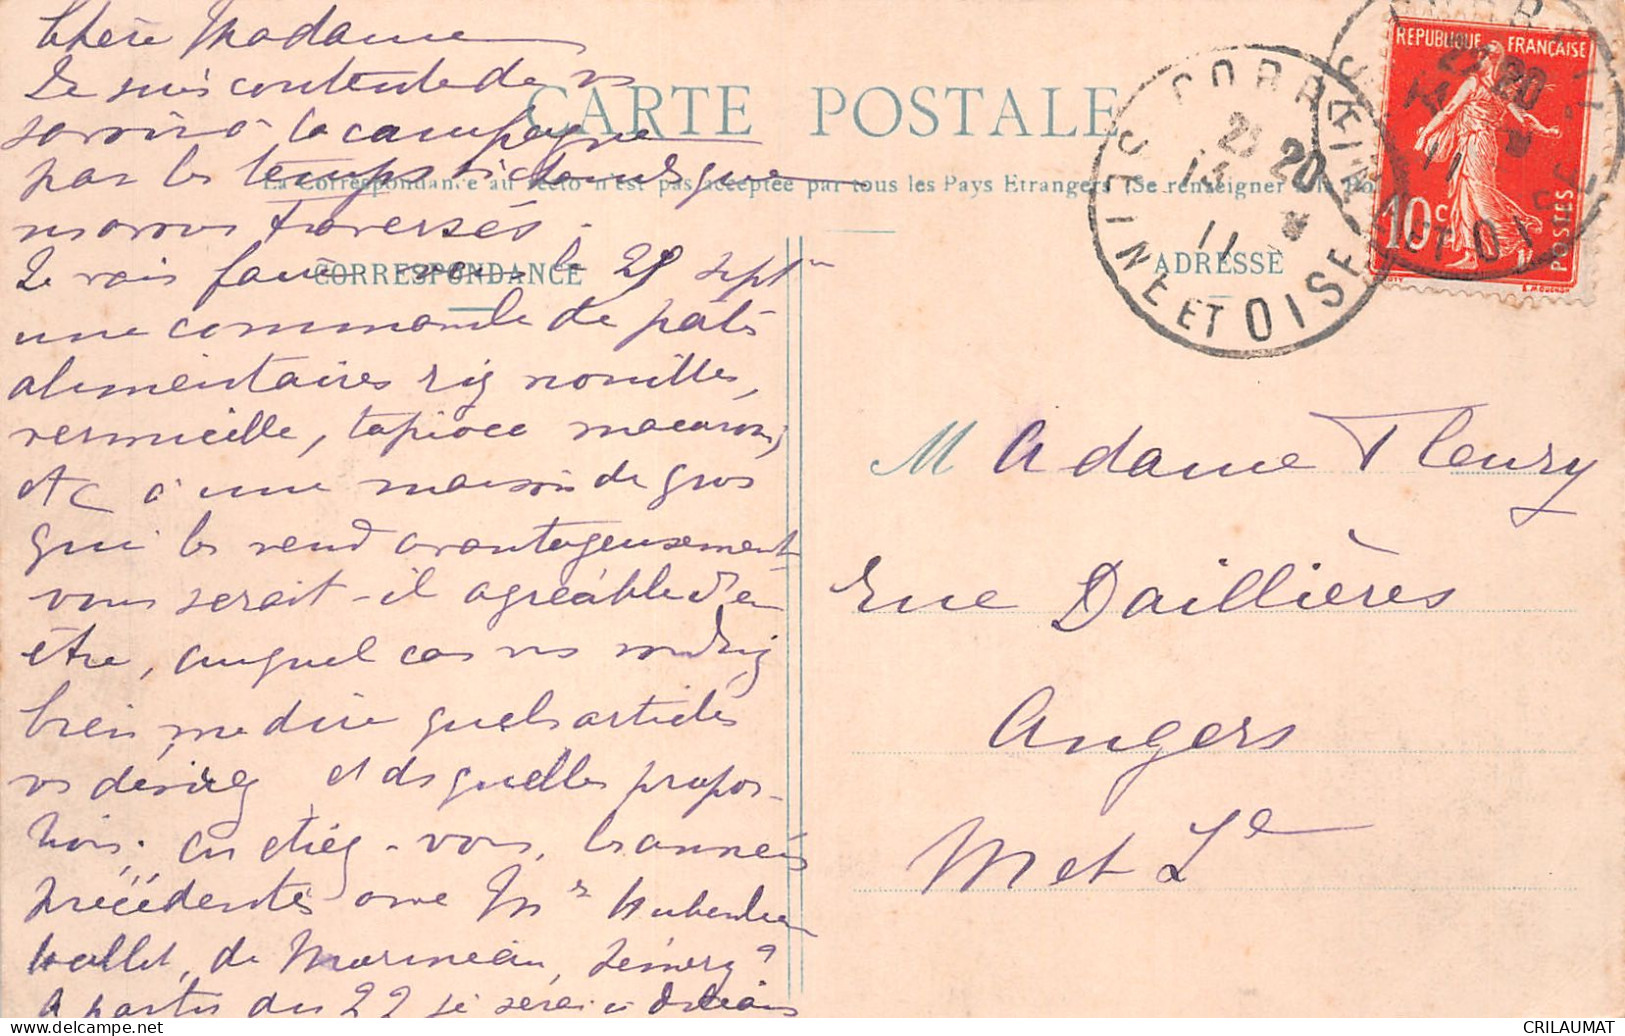 Chère Madame
Je suis contente de vs
savoir à la campagne
par les temps si chauds que
nous avons traversés.
Je vais faire venir le 25 sept
une commande de pâtes
alimentaires riz nouilles,
vermicelle, tapioca macaroni,
etc à une maison de gros
qui les vend avantageusement
vous serait-il agréable d'en
être, auquel cas vs voudriez
bien me dire quels articles
vs désirez et ds quelles propor-
tions. en étiez-vous, les années
précédentes avec Mrs
Mollet, de Marmeau,
A partir du 22 je serai à Orléans
CARTE POSTALE
La Correspondance au recto n'est pas acceptée par tous les Pays Etrangers (Se renseigner à la Po
CORRESPONDANCE
ADRESSE
REPUBLIQUE FRANÇAISE
10 c
POSTES
SEINE ET OISE
20
11
Madame Fleury
rue Daillières
Angers
M et Le
CRILAUMAT